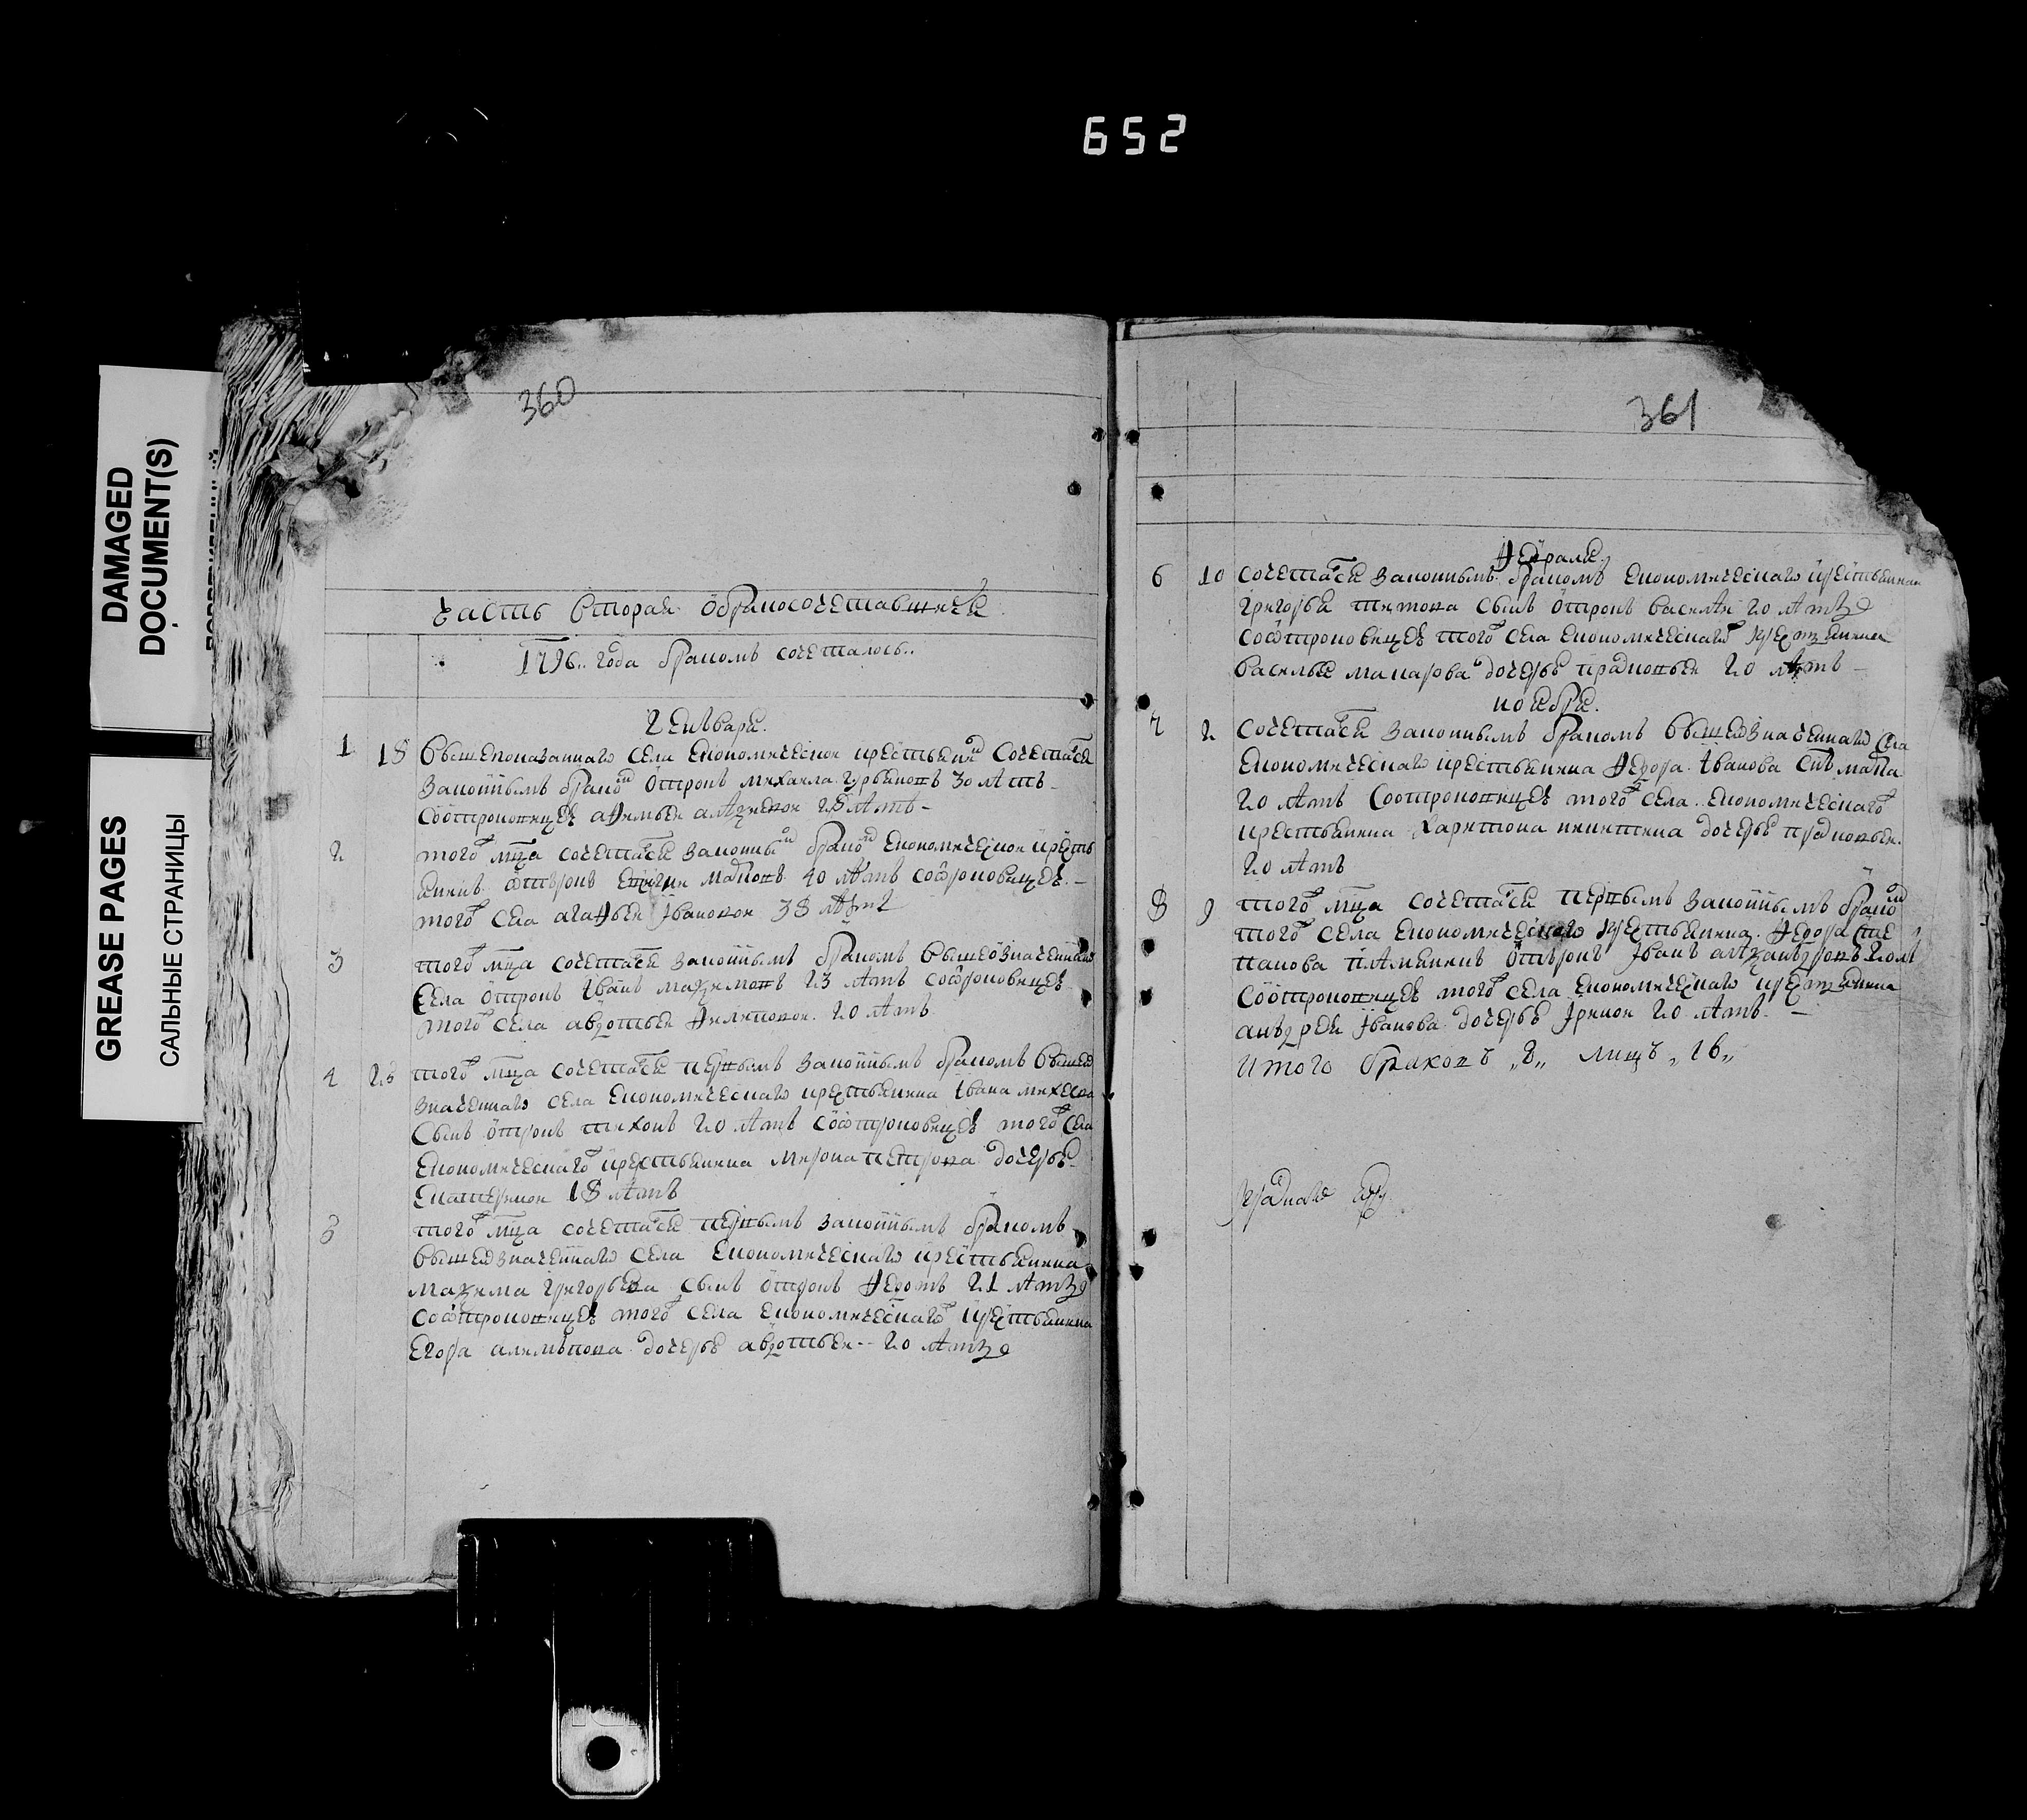 652
DAMAGED
DOCUMENT(S)
GREASE PAGES
САЛЬНЫЕ СТРАНИЦЫ
360
часть вторая ѡбракосочетавшихся
1796.. года бракомъ сочеталось..
Генъваря
1 18 вышепоказаннаго села економической крестьянинъ сочетася
законнымъ бракомъ отрокъ михаила гурьяновъ 30 лѣтъ
соотроковицеѣ 25 лѣтъ
2 того мца сочетася законнымъ бракомъ економической кресть
янинъ ѡтрокъ 40 лѣтъ соѡтроковицеѣ
того села агафьей івановой 38 лѣтъ
3 того мца сочетася законнымъ бракомъ вышеозначеннаго
села отрокъ іванъ маѯимовъ 23 лѣтъ соѡтроковицеѣ
того села авдотьей филиповой 20 лѣтъ
4 23 того мца сочетася первымъ законнымъ бракомъ вышео
значеннаго села економическаго крестьянина івана михеева
сынъ отрокъ тихонъ 20 лѣтъ соѡтроковицеѣ того села
економическаго крестьянина мирона петрова дочерью
екатериной 18 лѣтъ
5 того мца сочетася первымъ законнымъ бракомъ
вышеѡзначеннаго села економическаго крестьянина
маѯима григорьева сынъ отрокъ федотъ 21 лѣтъ
соѡтроковицеѣ того села економическаго крестьянина
егора дочерью авдотьей 20 лѣтъ
361
Февраля
6 10 сочетася законнымъ бракомъ економическаго крестьянина
григорья титова сынъ отрокъ василѣй 20 лѣтъ
соѡтроковицеѣ того села економическаго крестьянина
василья макарова дочерью прасковьей 20 лѣтъ
ноября
7 2 сочетася законнымъ бракомъ вышеѡзначеннаго села
економическаго крестьянина федора іванова снъ
20 лѣтъ соотроковицеѣ того села економическаго
крестьянина харитона никитина дочерью прасковьей
20 лѣтъ
8 9 того мца сочетася первымъ законнымъ бракомъ
того села економическаго крестьянина федора сте
панова племянникъ отрокъ іванъ алеѯандровъ 20 лѣ
соотроковицеѣ того села економическаго крестьянина
андрея іванова дочерью іриной 20 лѣтъ
итого браковъ „8„ лицъ „16„